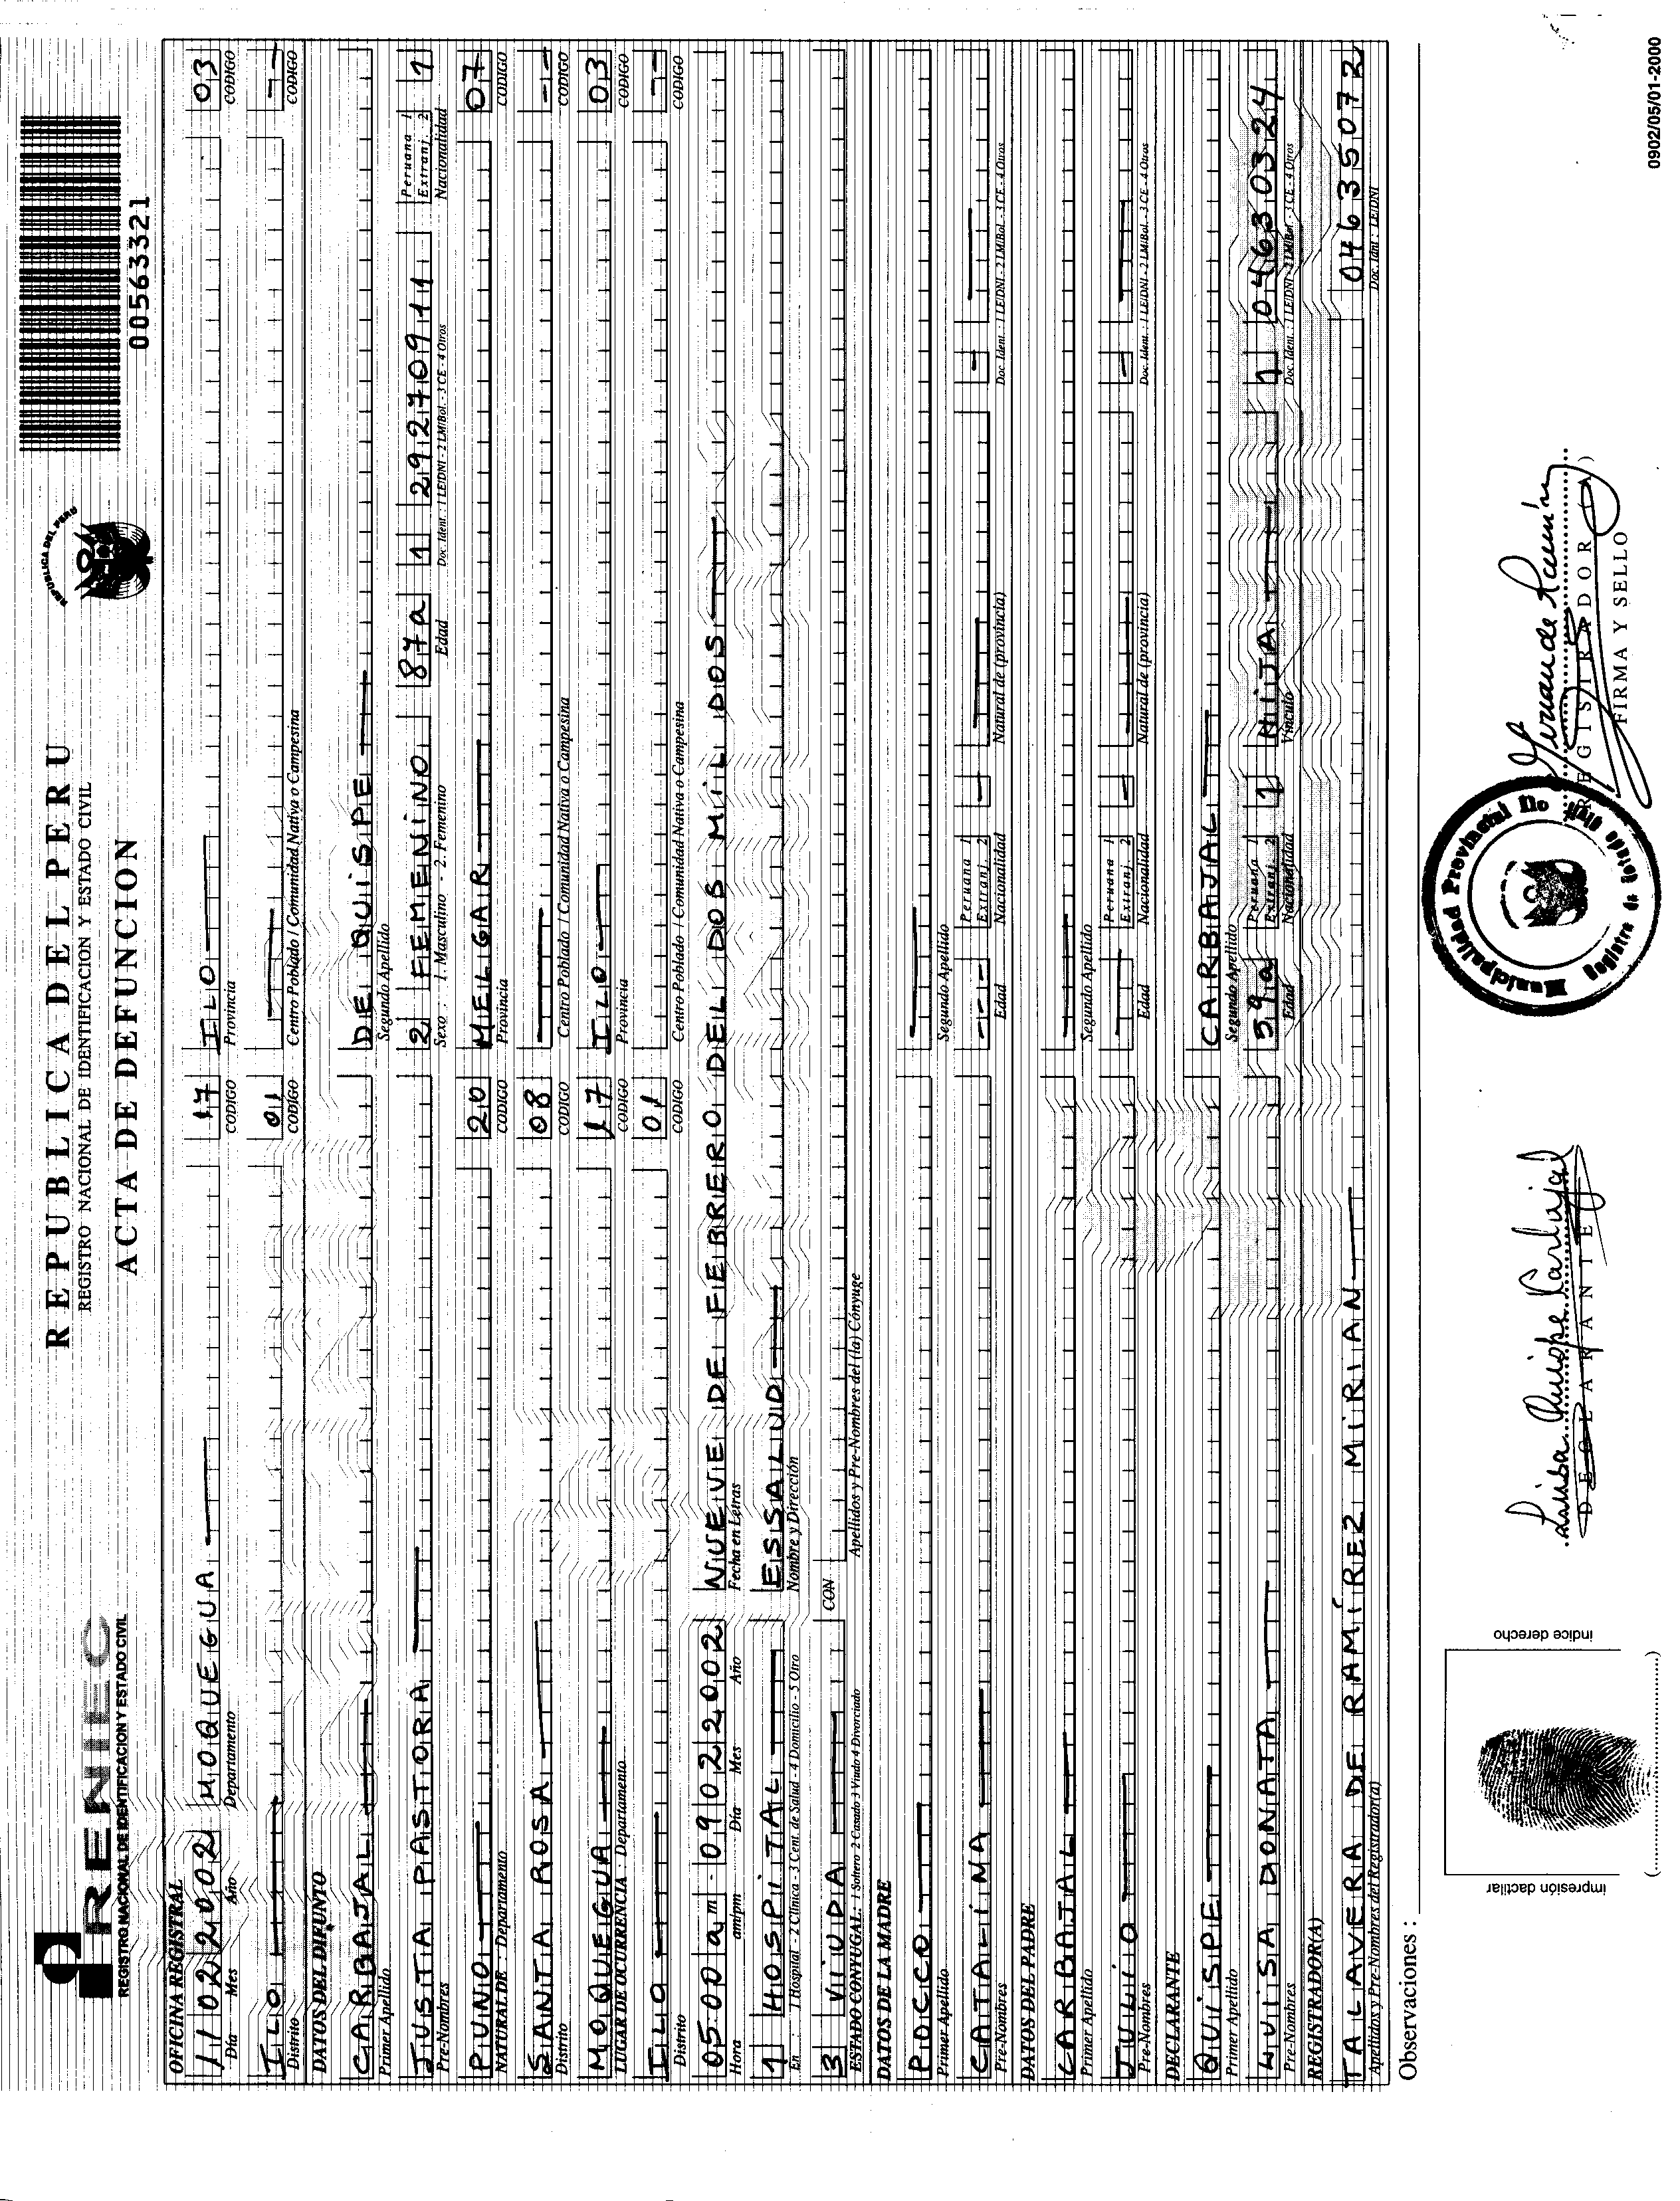 REPUBLICA DEL PERU
REGISTRO NACIONAL DE IDENTIFICACION Y ESTADO CIVIL
ACTA DE DEFUNCION
RENIEC
REGISTRO NACIONAL DE IDENTIFICACION Y ESTADO CIVIL
REPUBLICA DEL PERU
00563321
OFICINA REGISTRAL
11 02 2002 MOQUEGUA 17 ILO 03
Día Mes Año Departamento CODIGO Provincia CODIGO
ILO 01 --
Distrito CODIGO Centro Poblado / Comunidad Nativa o Campesina CODIGO
DATOS DEL DIFUNTO
CARBAJAL DE QUISPE
Primer Apellido Segundo Apellido
JUSTA PASTORA 2 FEMENINO 87a 1 29270911 Peruana 1 Extranj. 2 1
Pre-Nombres Sexo : 1. Masculino - 2. Femenino Edad Doc. Ident. : 1 LE/DNI - 2 LM/Bol. - 3 CE - 4 Otros Nacionalidad
PUNO 20 MELGAR 07
NATURAL DE : Departamento CODIGO Provincia CODIGO
SANTA ROSA 08 --
Distrito CODIGO Centro Poblado / Comunidad Nativa o Campesina CODIGO
MOQUEGUA 17 ILO 03
LUGAR DE OCURRENCIA : Departamento CODIGO Provincia CODIGO
ILO 01 --
Distrito CODIGO Centro Poblado / Comunidad Nativa o Campesina CODIGO
05:00 am - 09 02 2002 NUEVE DE FEBRERO DEL DOS MIL DOS
Hora am/pm Día Mes Año Fecha en Letras
1 HOSPITAL ESSALUD
En : 1 Hospital - 2 Clínica - 3 Cent. de Salud - 4 Domicilio - 5 Otro Nombre y Dirección
3 VIUDA CON
ESTADO CONYUGAL: 1 Soltero 2 Casado 3 Viudo 4 Divorciado Apellidos y Pre-Nombres del (la) Cónyuge
DATOS DE LA MADRE
POCO
Primer Apellido Segundo Apellido
CATALINA --- Peruana 1 Extranj. 2 - -
Pre-Nombres Edad Nacionalidad Natural de (provincia) Doc. Ident. : 1 LE/DNI - 2 LM/Bol. - 3 CE - 4 Otros
DATOS DEL PADRE
CARBAJAL
Primer Apellido Segundo Apellido
JULIO Peruana 1 Extranj. 2 - -
Pre-Nombres Edad Nacionalidad Natural de (provincia) Doc. Ident. : 1 LE/DNI - 2 LM/Bol. - 3 CE - 4 Otros
DECLARANTE
QUISPE CARBAJAL
Primer Apellido Segundo Apellido
LUISA DONATA 59a Peruana 1 Extranj. 2 1 HIJA 1 04630324
Pre-Nombres Edad Nacionalidad Vínculo Doc. Ident. : 1 LE/DNI - 2 LM/Bol. - 3 CE - 4 Otros
REGISTRADOR(A)
TALAVERA DE RAMÍREZ MIRIAN 04635072
Apellidos y Pre-Nombres del Registrador(a) Doc. Idnt : LE/DNI
Observaciones :
impresión dactilar
indice derecho
Luisa Quispe Carbajal
DECLARANTE
Municipalidad Provincial Ilo
Registro de Estado Civil
REGISTRADOR (A)
FIRMA Y SELLO
0902/05/01-2000